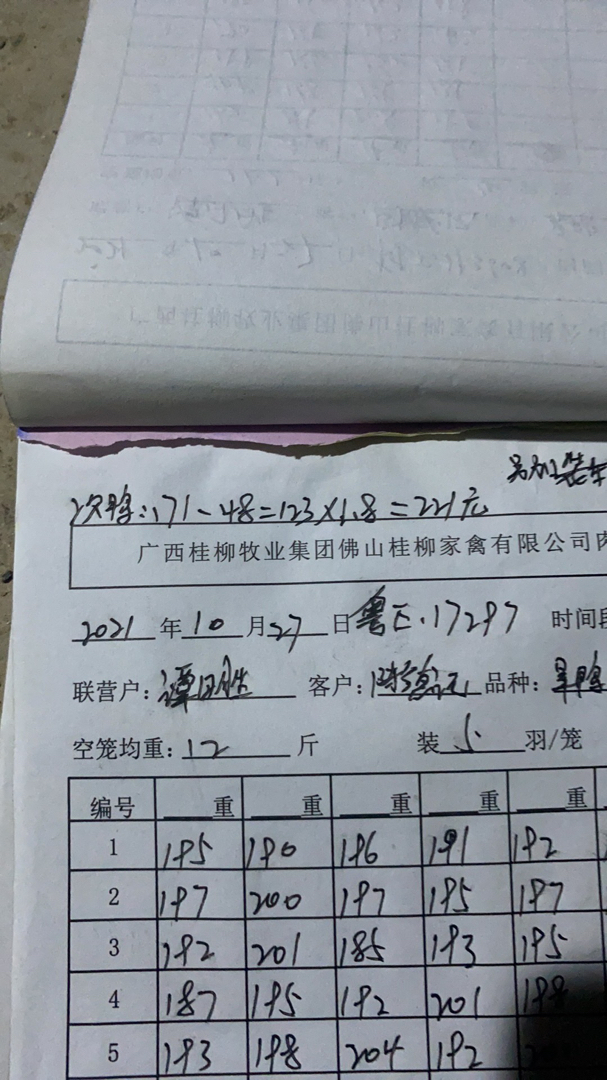 另加装车
次鸭:171-48=123×1.8=221元
广西桂柳牧业集团佛山桂柳家禽有限公司肉
2021年10月27日 粤E.17297 时间段
联营户:谭日胜 客户: 品种:
空笼均重:12斤 装5羽/笼
编号 重 重 重 重 重
1 195 190 196 191 192
2 197 200 197 195 197
3 192 201 185 193 195
4 187 195 192 201 198
5 193 198 204 192